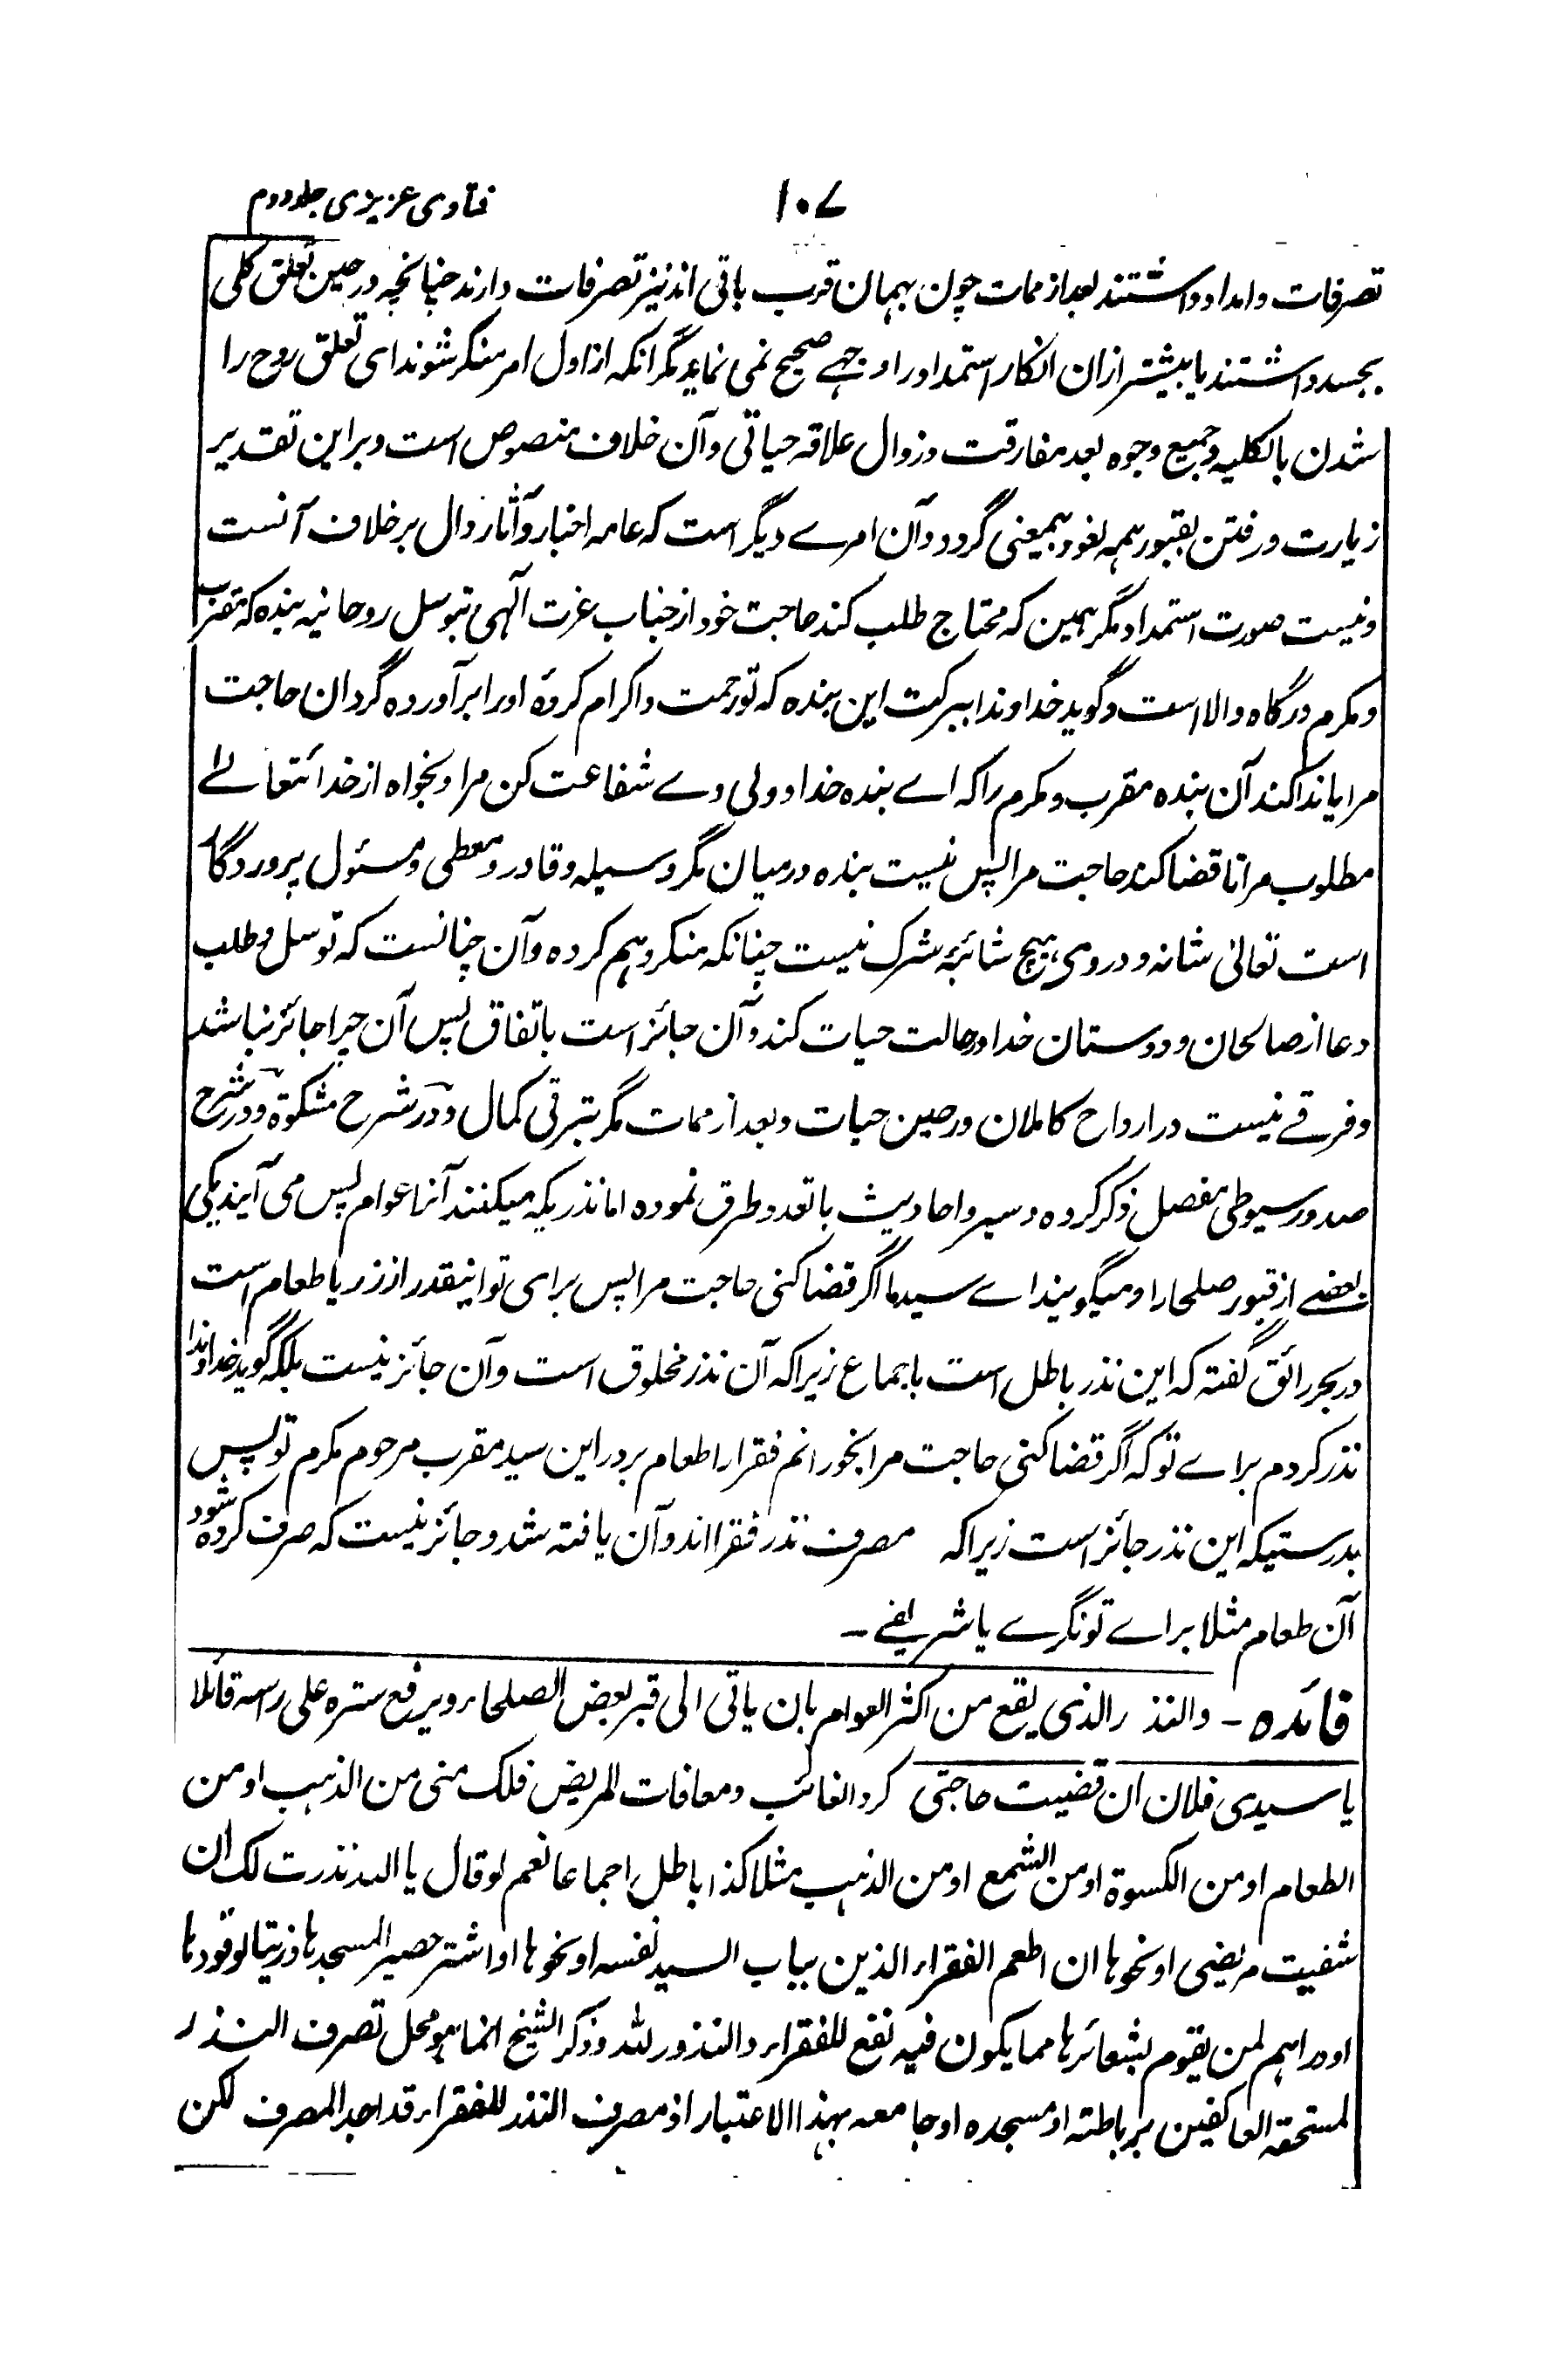 فتاوی عزیزی جلد دوم
۱۰۷
تصرفات و امداد داشتند بعد از ممات چون بهمان قرب باقی اند نیز تصرفات دارند چنانچه در حین تعلق کلی
بجسد داشتند یا بیشتر ازان انکار استمداد را وجهے صحیح نمی نماید مگر آنکه از اول امر منکر شوند ای تعلق روح را
شدن بالکلیه و جمیع وجوه بعد مفارقت و زوال علاقه حیاتی و آن خلاف منصوص است و براین تقدیر
زیارت و رفتن بقبور همه لغو و بیمعنی گردد و آن امرے دیگر است که عامه اخبار و آثار دال بر خلاف آنست
و نیست صورت استمداد مگر همین که محتاج طلب کند حاجت خود از جناب عزت الٰهی بتوسل روحانیه بنده که مقرب
و مکرم درگاه والا است و گوید خداوندا ببرکت این بنده که تو رحمت و اکرام کردهٔ اورا برآورده گردان حاجت
مرا یا ندا کند آن بنده مقرب و مکرم را که اے بنده خدا و ولی وے شفاعت کن مرا و بخواه از خدائتعالے
مطلوب مرا تا قضا کند حاجت مرا پس نیست بنده درمیان مگر وسیله و قادر و معطی و مسئول پروردگار
است تعالیٰ شانه و دروی هیچ شائبهٔ شرک نیست چنانکه منکر وهم کرده و آن چنانست که توسل و طلب
دعا از صالحان و دوستان خدا در حالت حیات کند و آن جائز است باتفاق پس آن چرا جائز نباشد
و فرقے نیست در ارواح کاملان در حین حیات و بعد از ممات مگر بترقی کمال و در شرح مشکوٰة و در شرح
صدور سیوطی مفصل ذکر کرده و سیر و احادیث با تعدد طرق نموده اما نذریکه میکنند آنرا عوام پس می آیند یکی
بعضے از قبور صلحا را و میگویند اے سید ما اگر قضا کنی حاجت مرا پس برای تو اینقدر از زر یا طعام است
در بحر رائق گفته که این نذر باطل است باجماع زیرا که آن نذر مخلوق است و آن جائز نیست بلکه گوید خداوندا
نذر کردم براے تو که اگر قضا کنی حاجت مرا بخورانم فقرا را طعام بر در این سید مقرب مرحوم مکرم تو پس
بدرستیکه این نذر جائز است زیرا که مصرف نذر فقرا اند و آن یافته شد و جائز نیست که صرف کرده شود
آن طعام مثلا براے تونگرے یا شریفے ۔
فائده ۔ والنذر الذی یقع من اکثر العوام بان یاتی الی قبر بعض الصلحاء ویرفع ستره علی راسه قائلا
یا سیدی فلان ان قضیت حاجتی کرد الغائب ومعافات المریض فلک منی من الذهب او من
الطعام او من الکسوة او من الشمع او من الذهب مثلا کذا باطل اجماعا نعم لو قال یا الله نذرت لک ان
شفیت مریضی او نحوها ان اطعم الفقراء الذین بباب السید نفسه او نحوها او اشتر حصیر المسجدها وزیتا لوقودها
او دراهم لمن یقوم بشعائرها مما یکون فیه نفع للفقراء والنذور لله وذکر الشیخ انما هو محل تصرف النذر
لمستحقه العاکفین برباطته او مسجده او جامعه بهذا الاعتبار اذ مصرف النذر للفقراء قد اجد المصرف لکن